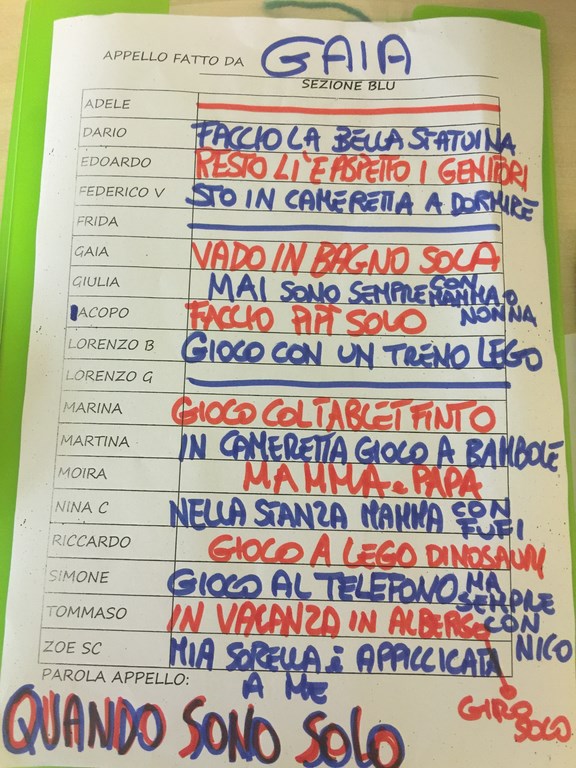 APPELLO FATTO DA GAIA
SEZIONE BLU
ADELE
DARIO FACCIO LA BELLA STATUINA
EDOARDO RESTO LI' E ASPETTO I GENITORI
FEDERICO V STO IN CAMERETTA A DORMIRE
FRIDA
GAIA VADO IN BAGNO SOLA
GIULIA MAI SONO SEMPRE CON MAMMA O NONNA
IACOPO FACCIO PIPÌ SOLO
LORENZO B GIOCO CON UN TRENO LEGO
LORENZO G
MARINA GIOCO COL TABLET FINTO
MARTINA IN CAMERETTA GIOCO A BAMBOLE
MOIRA MAMMA e PAPA
NINA C NELLA STANZA MAMMA CON FUFI
RICCARDO GIOCO A LEGO DINOSAURI
SIMONE GIOCO AL TELEFONO MA SEMPRE CON NICO
TOMMASO IN VACANZA IN ALBERGO GIRO SOLO
ZOE SC MIA SORELLA è APPICCICATA A ME
PAROLA APPELLO:
QUANDO SONO SOLO